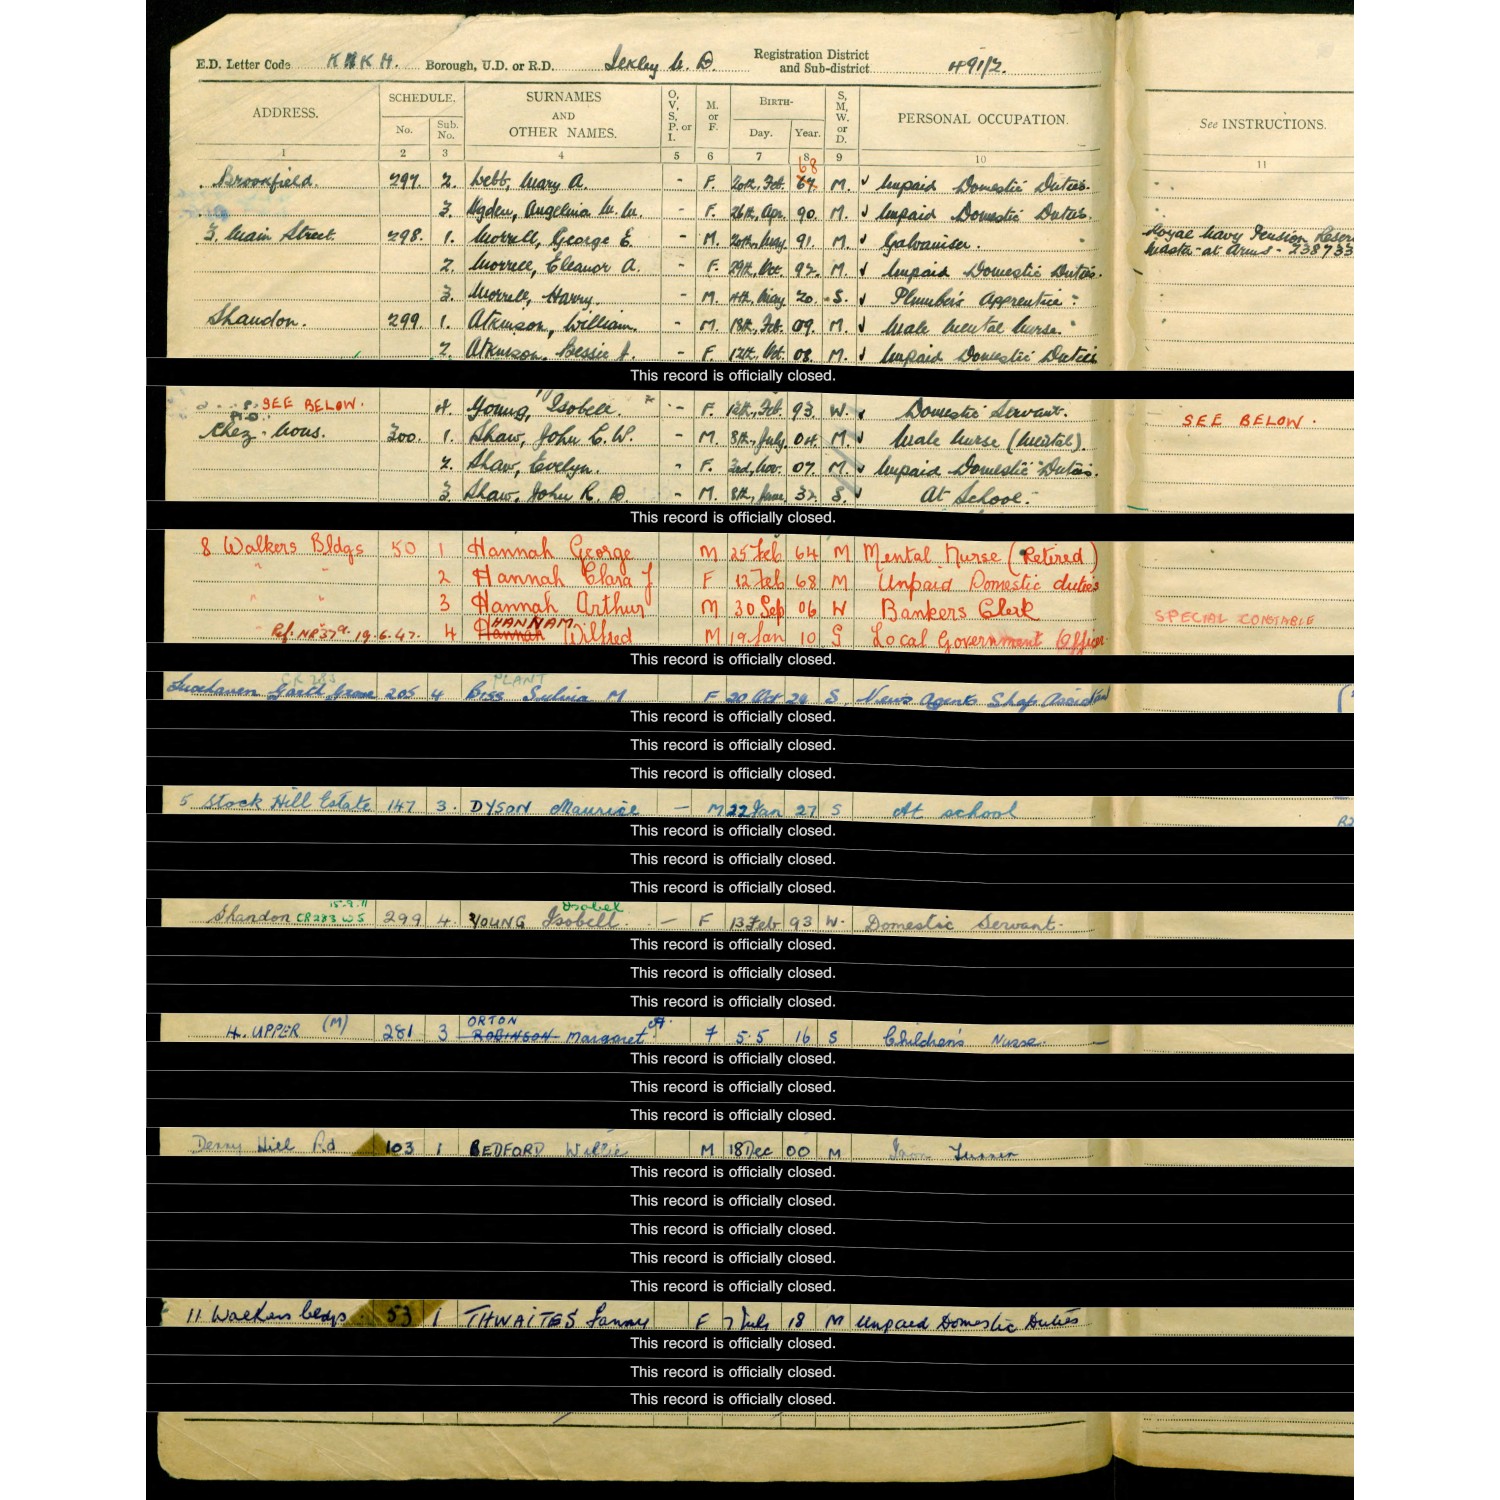 E.D. Letter Code K N K H. Borough, U.D. or R.D. U. D. Registration District and Sub-district 491/2.
ADDRESS. SCHEDULE. SURNAMES AND OTHER NAMES. O, V, S, P. or I. M. or F. BIRTH- S, M, W. or D. PERSONAL OCCUPATION. See INSTRUCTIONS.
No. Sub. No. Day. Year.
1 2 3 4 5 6 7 8 9 10 11
68
Brookfield. 297. 2. Webb, Mary A. - F. 20th, Feb. 67. M. ✓ Unpaid Domestic Duties.
3. Ogden, Angelina M. M. - F. 26th, Apr. 90. M. ✓ Unpaid Domestic Duties.
3. Main Street. 298. 1. Morrell, George E. - M. 20th, May. 91. M. ✓ Galvaniser. Royal Navy Pension Reser
Master-at Arms - 238733
2. Morrell, Eleanor A. - F. 29th, Oct. 92. M. ✓ Unpaid Domestic Duties.
3. Morrell, Harry. - M. 4th, May. 20. S. ✓ Plumber's Apprentice.
Shandon. 299. 1. Atkinson, William. - M. 18th, Feb. 09. M. ✓ Male Mental Nurse.
2. Atkinson, Bessie J. - F. 12th, Oct. 08. M. ✓ Unpaid Domestic Duties
This record is officially closed.
SEE BELOW. 4. Young, Isobell. - F. 12th, Feb. 93. W. ✓ Domestic Servant. SEE BELOW.
Chez-Nous. 300. 1. Shaw, John C. W. - M. 8th, July. 04. M. ✓ Male Nurse (Mental).
2. Shaw, Evelyn. - F. 2nd, Nov. 07. M. ✓ Unpaid Domestic Duties.
3. Shaw, John R. D. - M. 8th, June. 32. S. ✓ At School.
This record is officially closed.
8 Walkers Bldgs 50 1 Hannah George M 25 Feb 64 M Mental Nurse (Retired)
" " 2 Hannah Clara J F 12 Feb 68 M Unpaid Domestic duties
" " 3 Hannah Arthur M 30 Sep 06 W Bankers Clerk SPECIAL CONSTABLE
HANNAM
Ref. NR37a. 19.6.47. 4 Hannah Wilfred M 19 Jan 10 S Local Government Officer
This record is officially closed.
CR283 PLANT
Garth Grove 205 4 Biss Sylvia M F 20 Oct 24 S News Agents Shop Assistant
This record is officially closed.
This record is officially closed.
This record is officially closed.
5 Stock Hill Estate 147 3. DYSON Maurice - M 22 Jan 27 S At school
This record is officially closed.
This record is officially closed.
This record is officially closed.
15.9.11 Isobel
Shandon CR283 WS 299 4. YOUNG Isobell - F 13 Feb 93 W. Domestic Servant.
This record is officially closed.
This record is officially closed.
This record is officially closed.
ORTON
4. UPPER (M) 281 3 ROBINSON Margaret A. F 5.5 16 S Children's Nurse. -
This record is officially closed.
This record is officially closed.
This record is officially closed.
Derry Hill Rd 103 1 BEDFORD Willie M 18 Dec 00 M Iron Turner
This record is officially closed.
This record is officially closed.
This record is officially closed.
This record is officially closed.
This record is officially closed.
11 Walkers bldgs 53 1 THWAITES Fanny F 7 July 18 M Unpaid Domestic Duties
This record is officially closed.
This record is officially closed.
This record is officially closed.